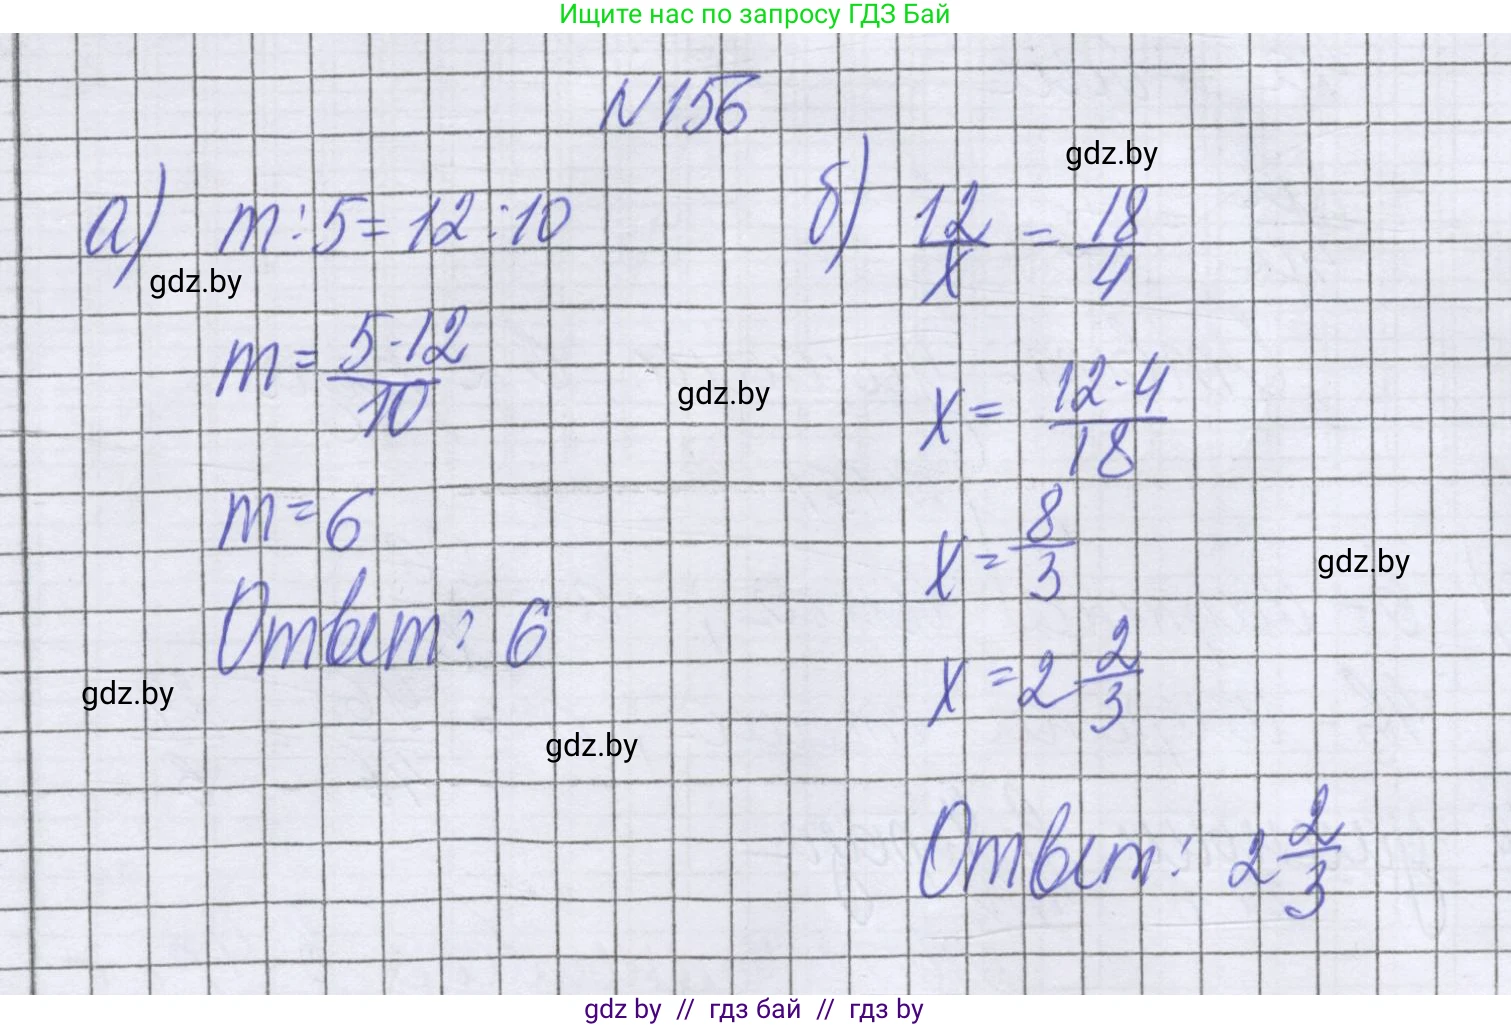 Ищите нас по запросу ГДЗ Бай
N156
gdz.by
а) m : 5 = 12 : 10
gdz.by
m = 5·12/10
m = 6
Ответ: 6
б) 12/x = 18/4
gdz.by
x = 12·4/18
x = 8/3
gdz.by
x = 2 2/3
gdz.by
gdz.by
Ответ: 2 2/3
gdz by // гдз бай // гдз by